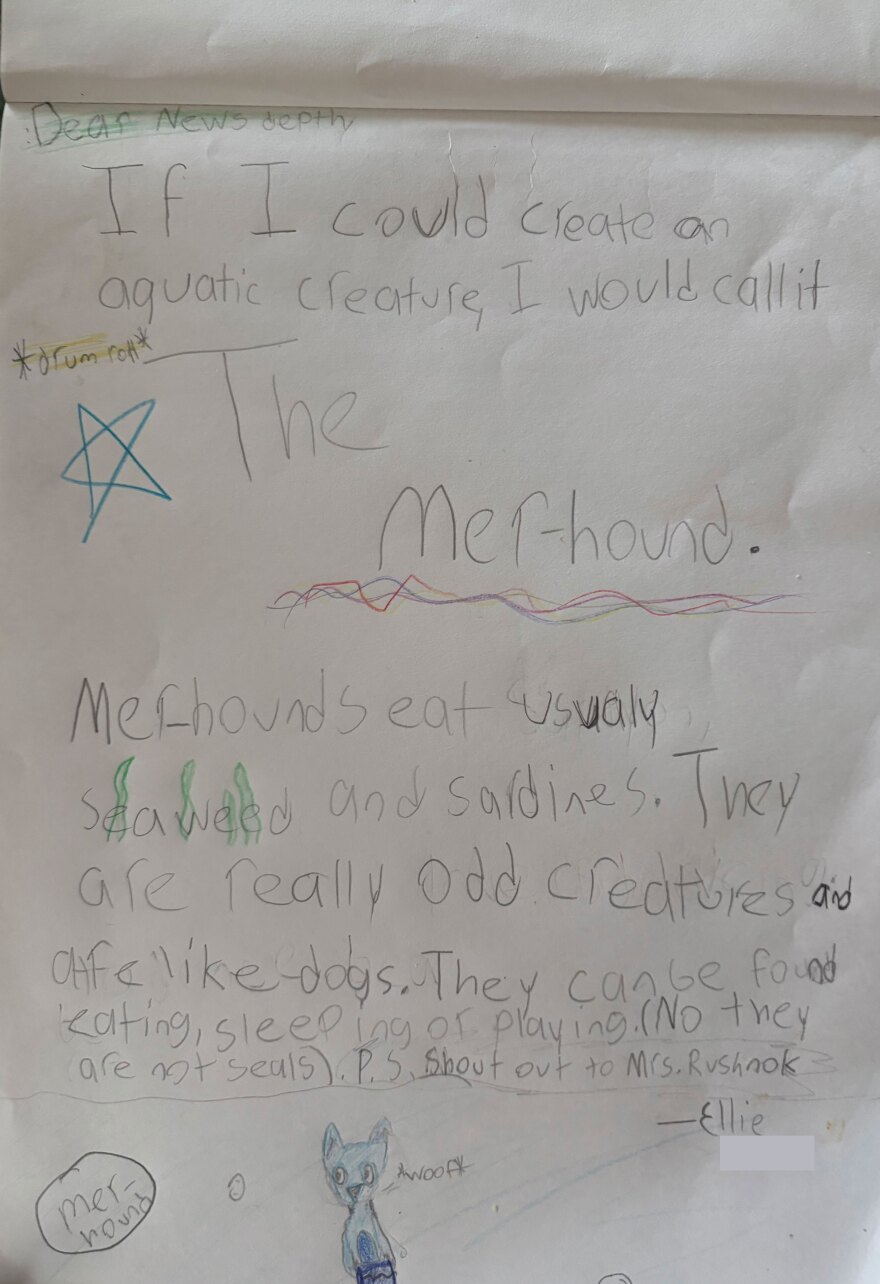 Dear News depth
If I could create an
aquatic creature, I would call it
*drum roll*
The
Mer-hound.
Mer-hounds eat usualy
seaweed and sardines. They
are really odd creatures and
are like dogs. They can be found
eating, sleeping or playing. (No they
are not seals). P.S. Shout out to Mrs. Rushnok
—Ellie
*woof*
mer-
hound